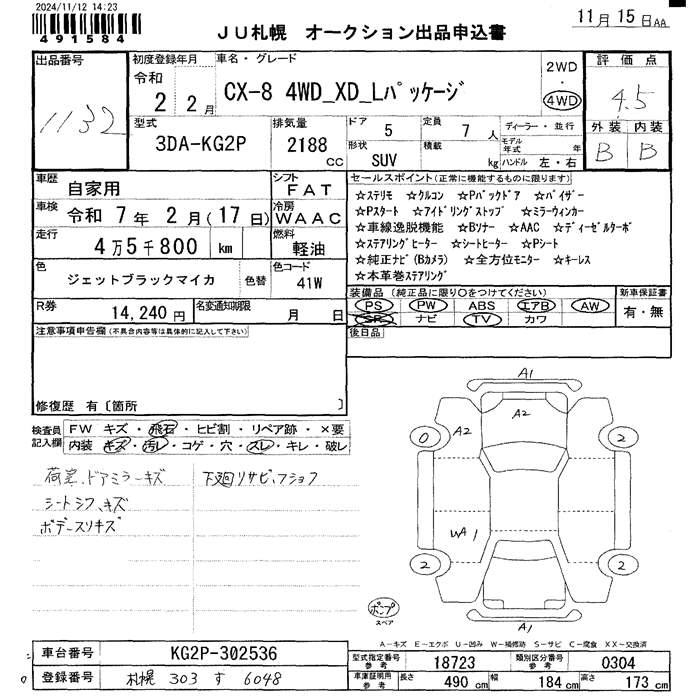 2024/11/12 14:23
491584
JU札幌 オークション出品申込書
11月 15日AA
出品番号
1132
初度登録年月
令和
2 2月
車名・グレード
CX-8 4WD_XD_Lパッケージ
2WD
・
4WD
評価点
4.5
型式
3DA-KG2P
排気量
2188 CC
ドア 5
定員 7人
形状 SUV
積載 kg
ディーラー・並行
モデル年式 年
ハンドル 左・右
外装 内装
B B
車歴 自家用
シフト FAT
車検 令和 7年 2月(17日)
冷房 WAAC
走行 4万5千800 km
燃料 軽油
色 ジェットブラックマイカ 色替
色コード 41W
R券 14,240円
名変通知期限 月 日
セールスポイント(正常に機能するものに限ります)
☆ステリモ ☆クルコン ☆Pバックドア ☆バイザー
☆Pスタート ☆アイドリングストップ ☆ミラーウィンカー
☆車線逸脱機能 ☆Bソナー ☆AAC ☆ディーゼルターボ
☆ステアリングヒーター ☆シートヒーター ☆Pシート
☆純正ナビ(Bカメラ) ☆全方位モニター ☆キーレス
☆本革巻ステアリング
装備品(純正品に限り○をつけてください)
PS PW ABS エアB AW
SR ナビ TV カワ
新車保証書
有・無
後日品
注意事項申告欄(不具合内容等は具体的に記入して下さい)
修復歴 有〔箇所 〕
検査員記入欄
FW キズ・飛石・ヒビ割・リペア跡・×要
内装 キズ・汚レ・コゲ・穴・スレ・キレ・破レ
荷室、ドアミラーキズ
シートシワ、キズ
ボデースリキズ
下廻リサビ、フショク
A1
A2
A2
0
2
WA1
2
2
A1
ポンプ
スペア
A-キズ E-エクボ U-凹み W-補修跡 S-サビ C-腐食 XX-交換済
車台番号 KG2P-302536
登録番号 札幌 303 す 6048
型式指定番号 参考 18723
類別区分番号 参考 0304
車庫証明用 参考
長さ 490 cm
幅 184 cm
高さ 173 cm